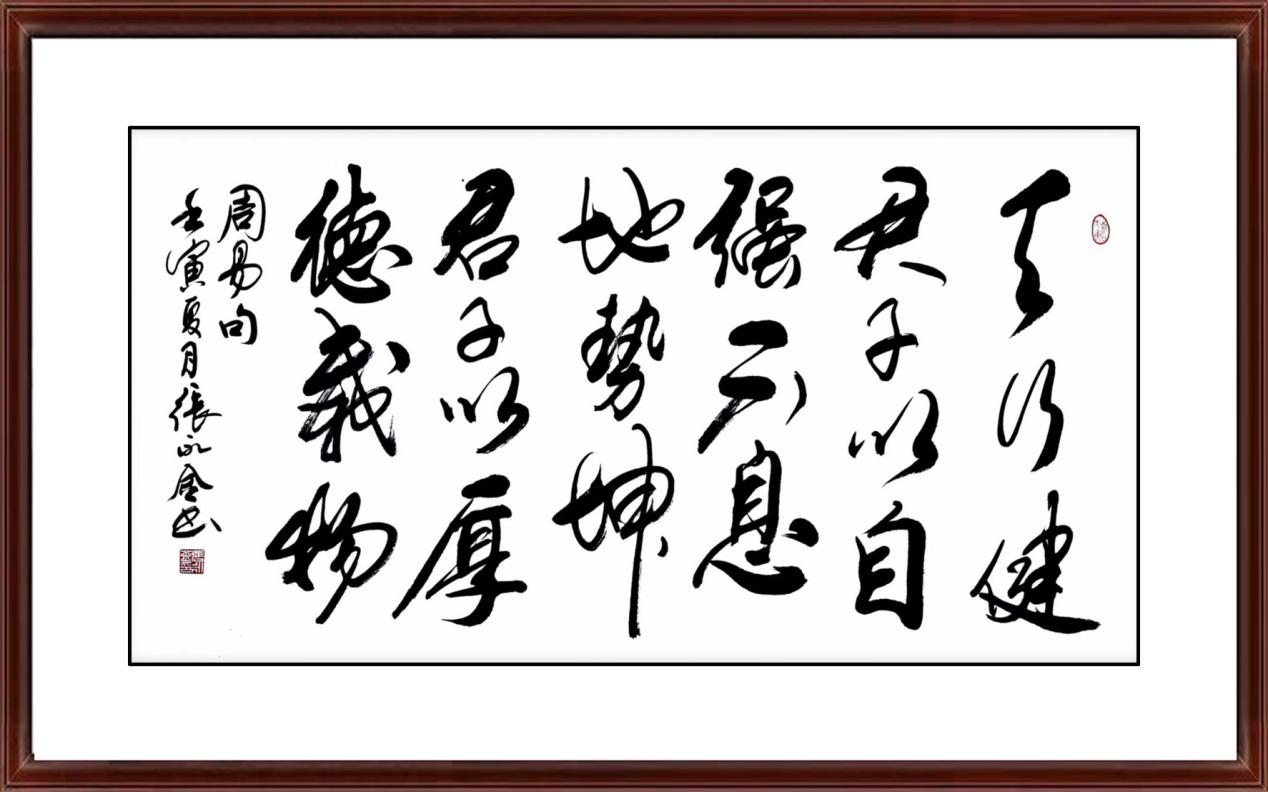 天行健
君子以自
强不息
地势坤
君子以厚
德载物
周易句
壬寅夏月張永金书